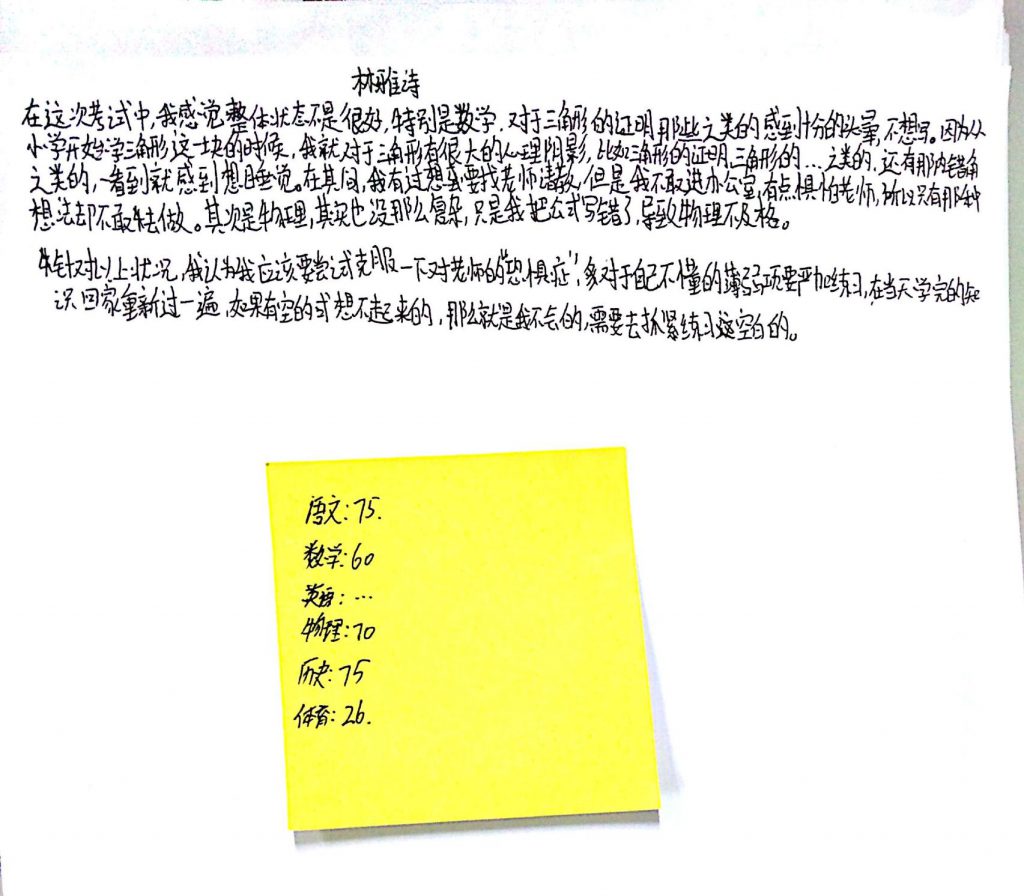 林雅诗
在这次考试中,我感觉整体状态不是很好,特别是数学,对于三角形的证明那些之类的感到十分的头晕,不想写。因为从
小学开始学三角形这一块的时候,我就对于三角形有很大的心理阴影,比如三角形的证明,三角形的…之类的,还有那内错角
之类的,一看到就感到想睡觉。在其间,我有过想要找老师请教,但是我不敢进办公室,有点惧怕老师,所以只有那种
想法却不敢去做。其次是物理,其实也没那么复杂,只是我把公式写错了,导致物理不及格。
针对以上状况,我认为我应该要尝试克服一下对老师的“恐惧症”,多对于自己不懂的薄弱项要严加练习,在当天学完的知
识回家重新过一遍,如果有空的或想不起来的,那么就是我不会的,需要去抓紧练习这空白的。
语文:75.
数学:60
英语:…
物理:70
历史:75
体育:26.